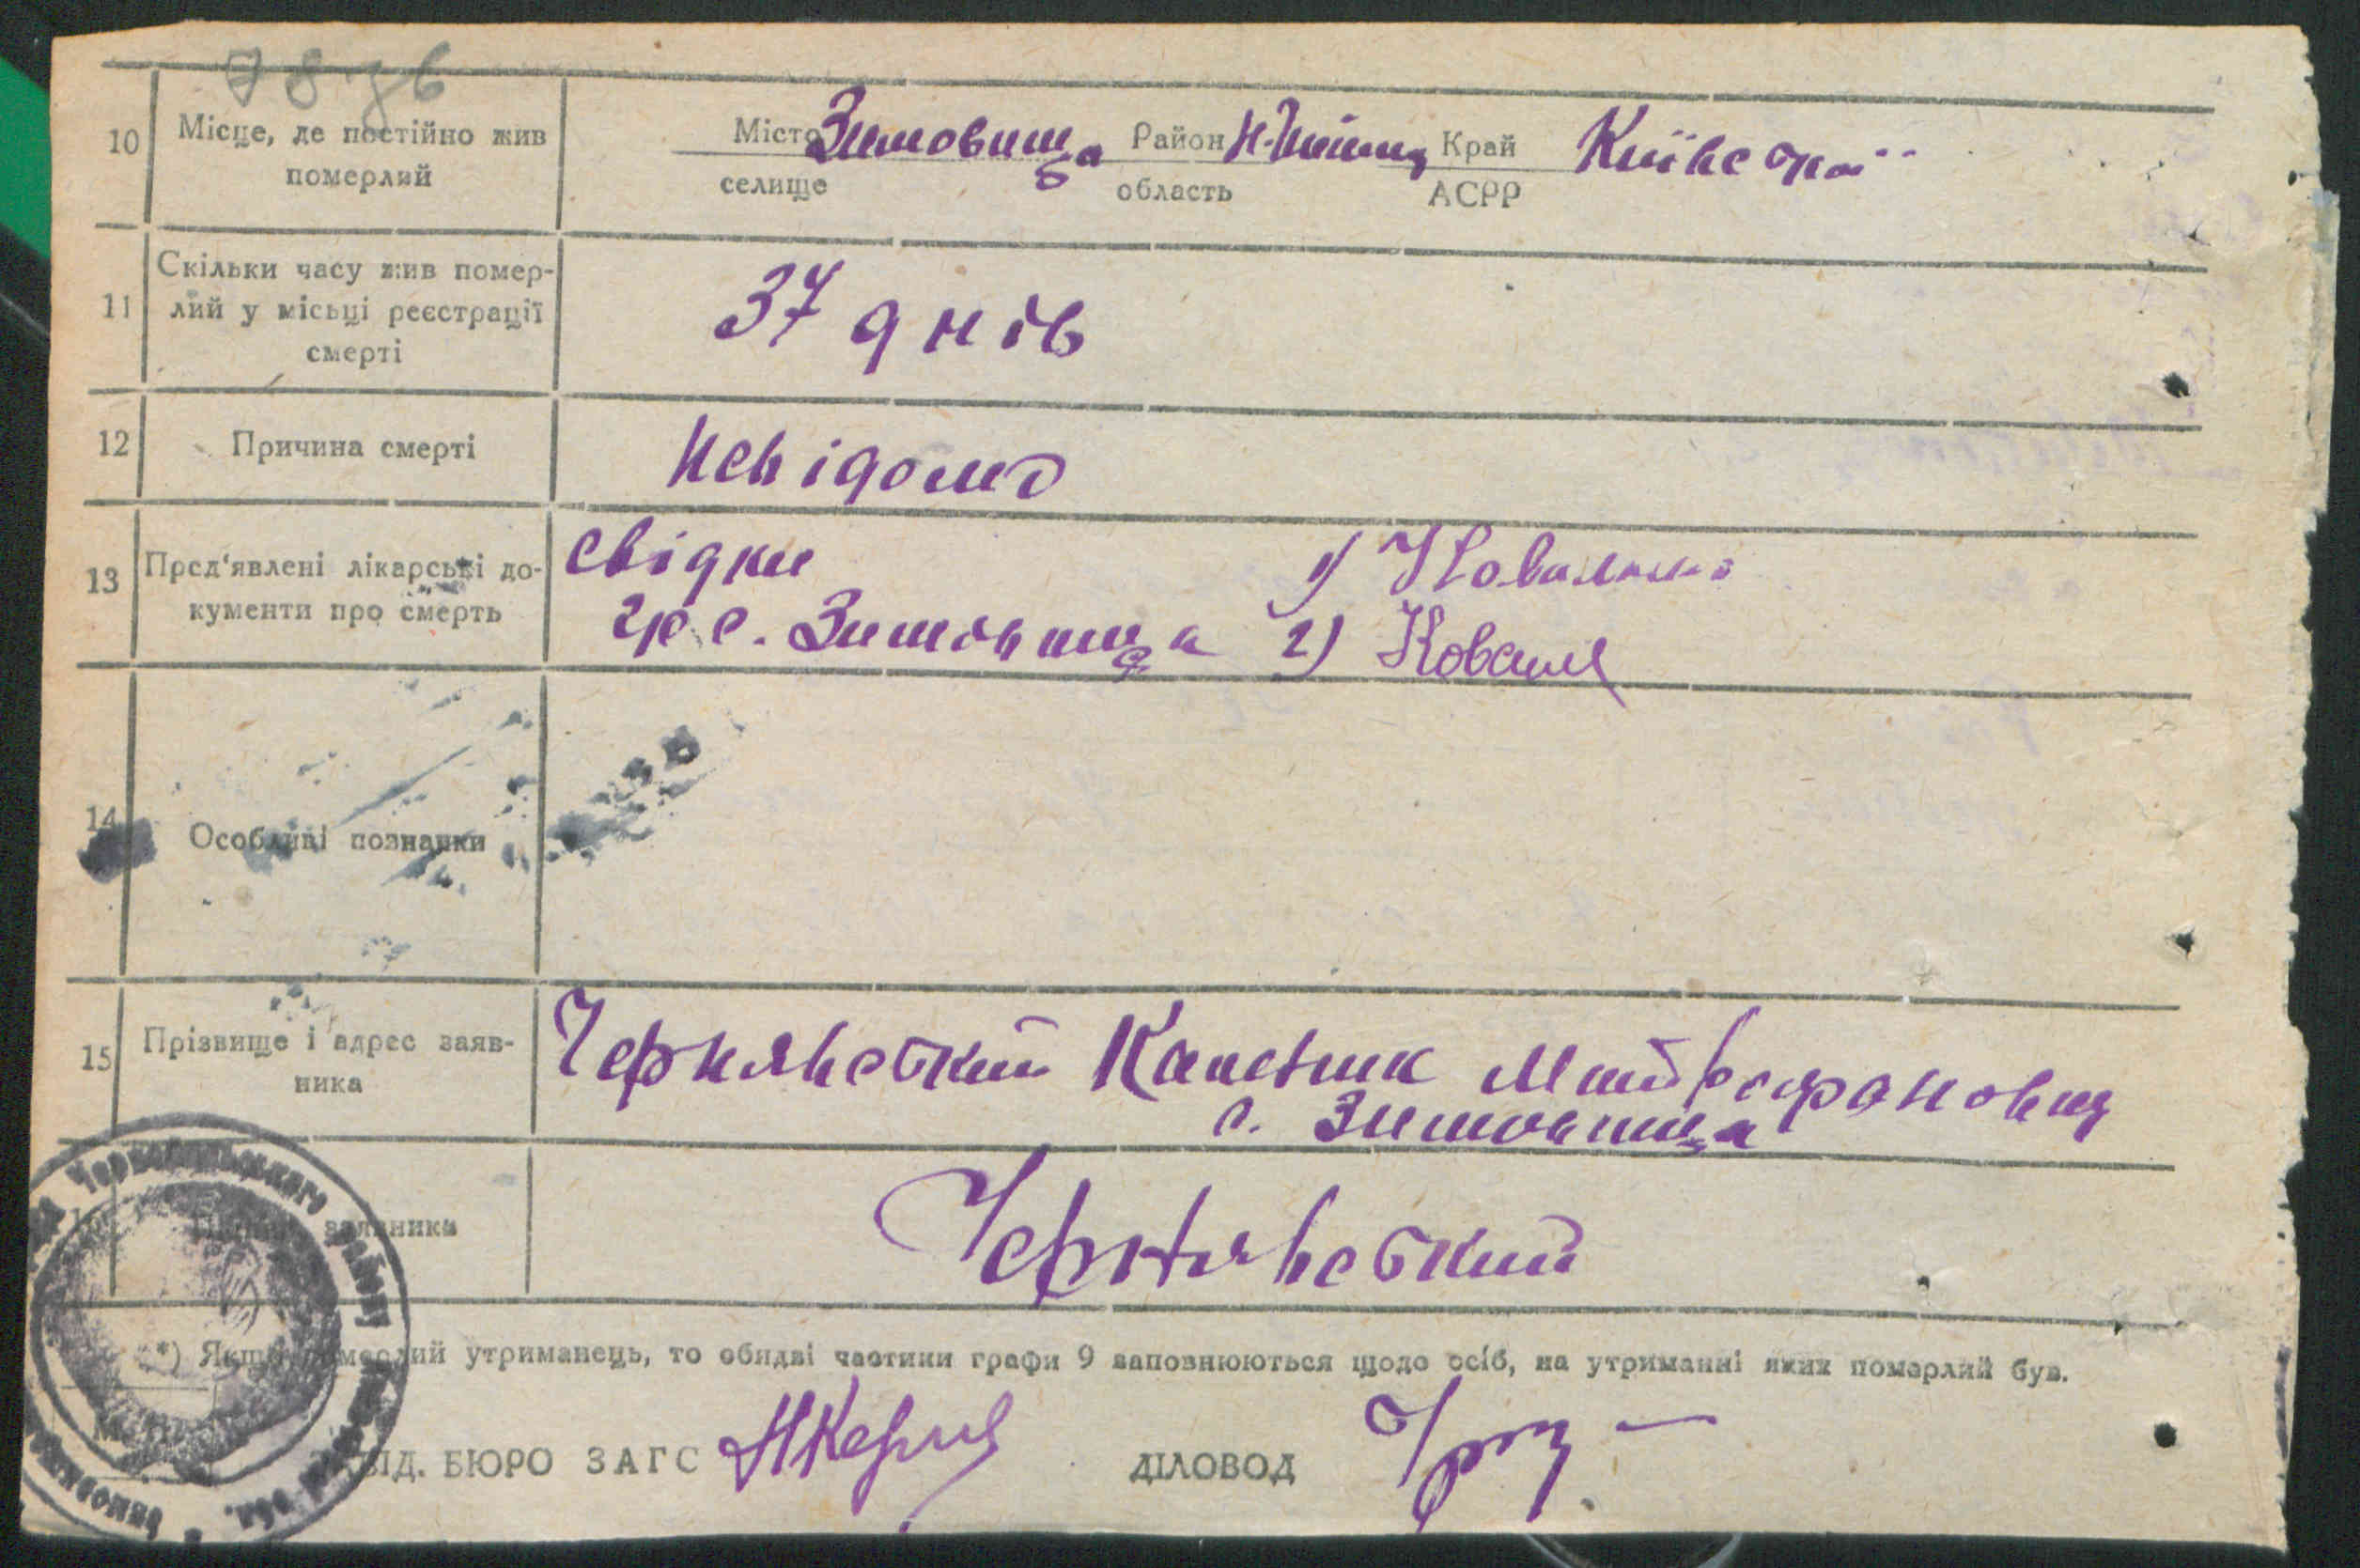 10
Місце, де постійно жив
померлий
Місто Зимовища Район Край Київської
селище область АСРР
11
Скільки часу жив помер-
лий у місьці реєстрації
смерті
37 днів
12
Причина смерті
Невідомо
13
Пред'явлені лікарські до-
кументи про смерть
свідки 1)
гр. с. Зимовища 2) Коваль
14
Особливі познанки
15
Прізвище і адрес заяв-
ника
Чернявський Каленик Митрофанович
с. Зимовища
16 заявника
Чернявський
*) Якщо померлий утриманець, то обидві частини графи 9 заповнюються щодо осіб, на утриманні яких померлий був.
ЗАВІД. БЮРО ЗАГС ДІЛОВОД
Чорнобильського району